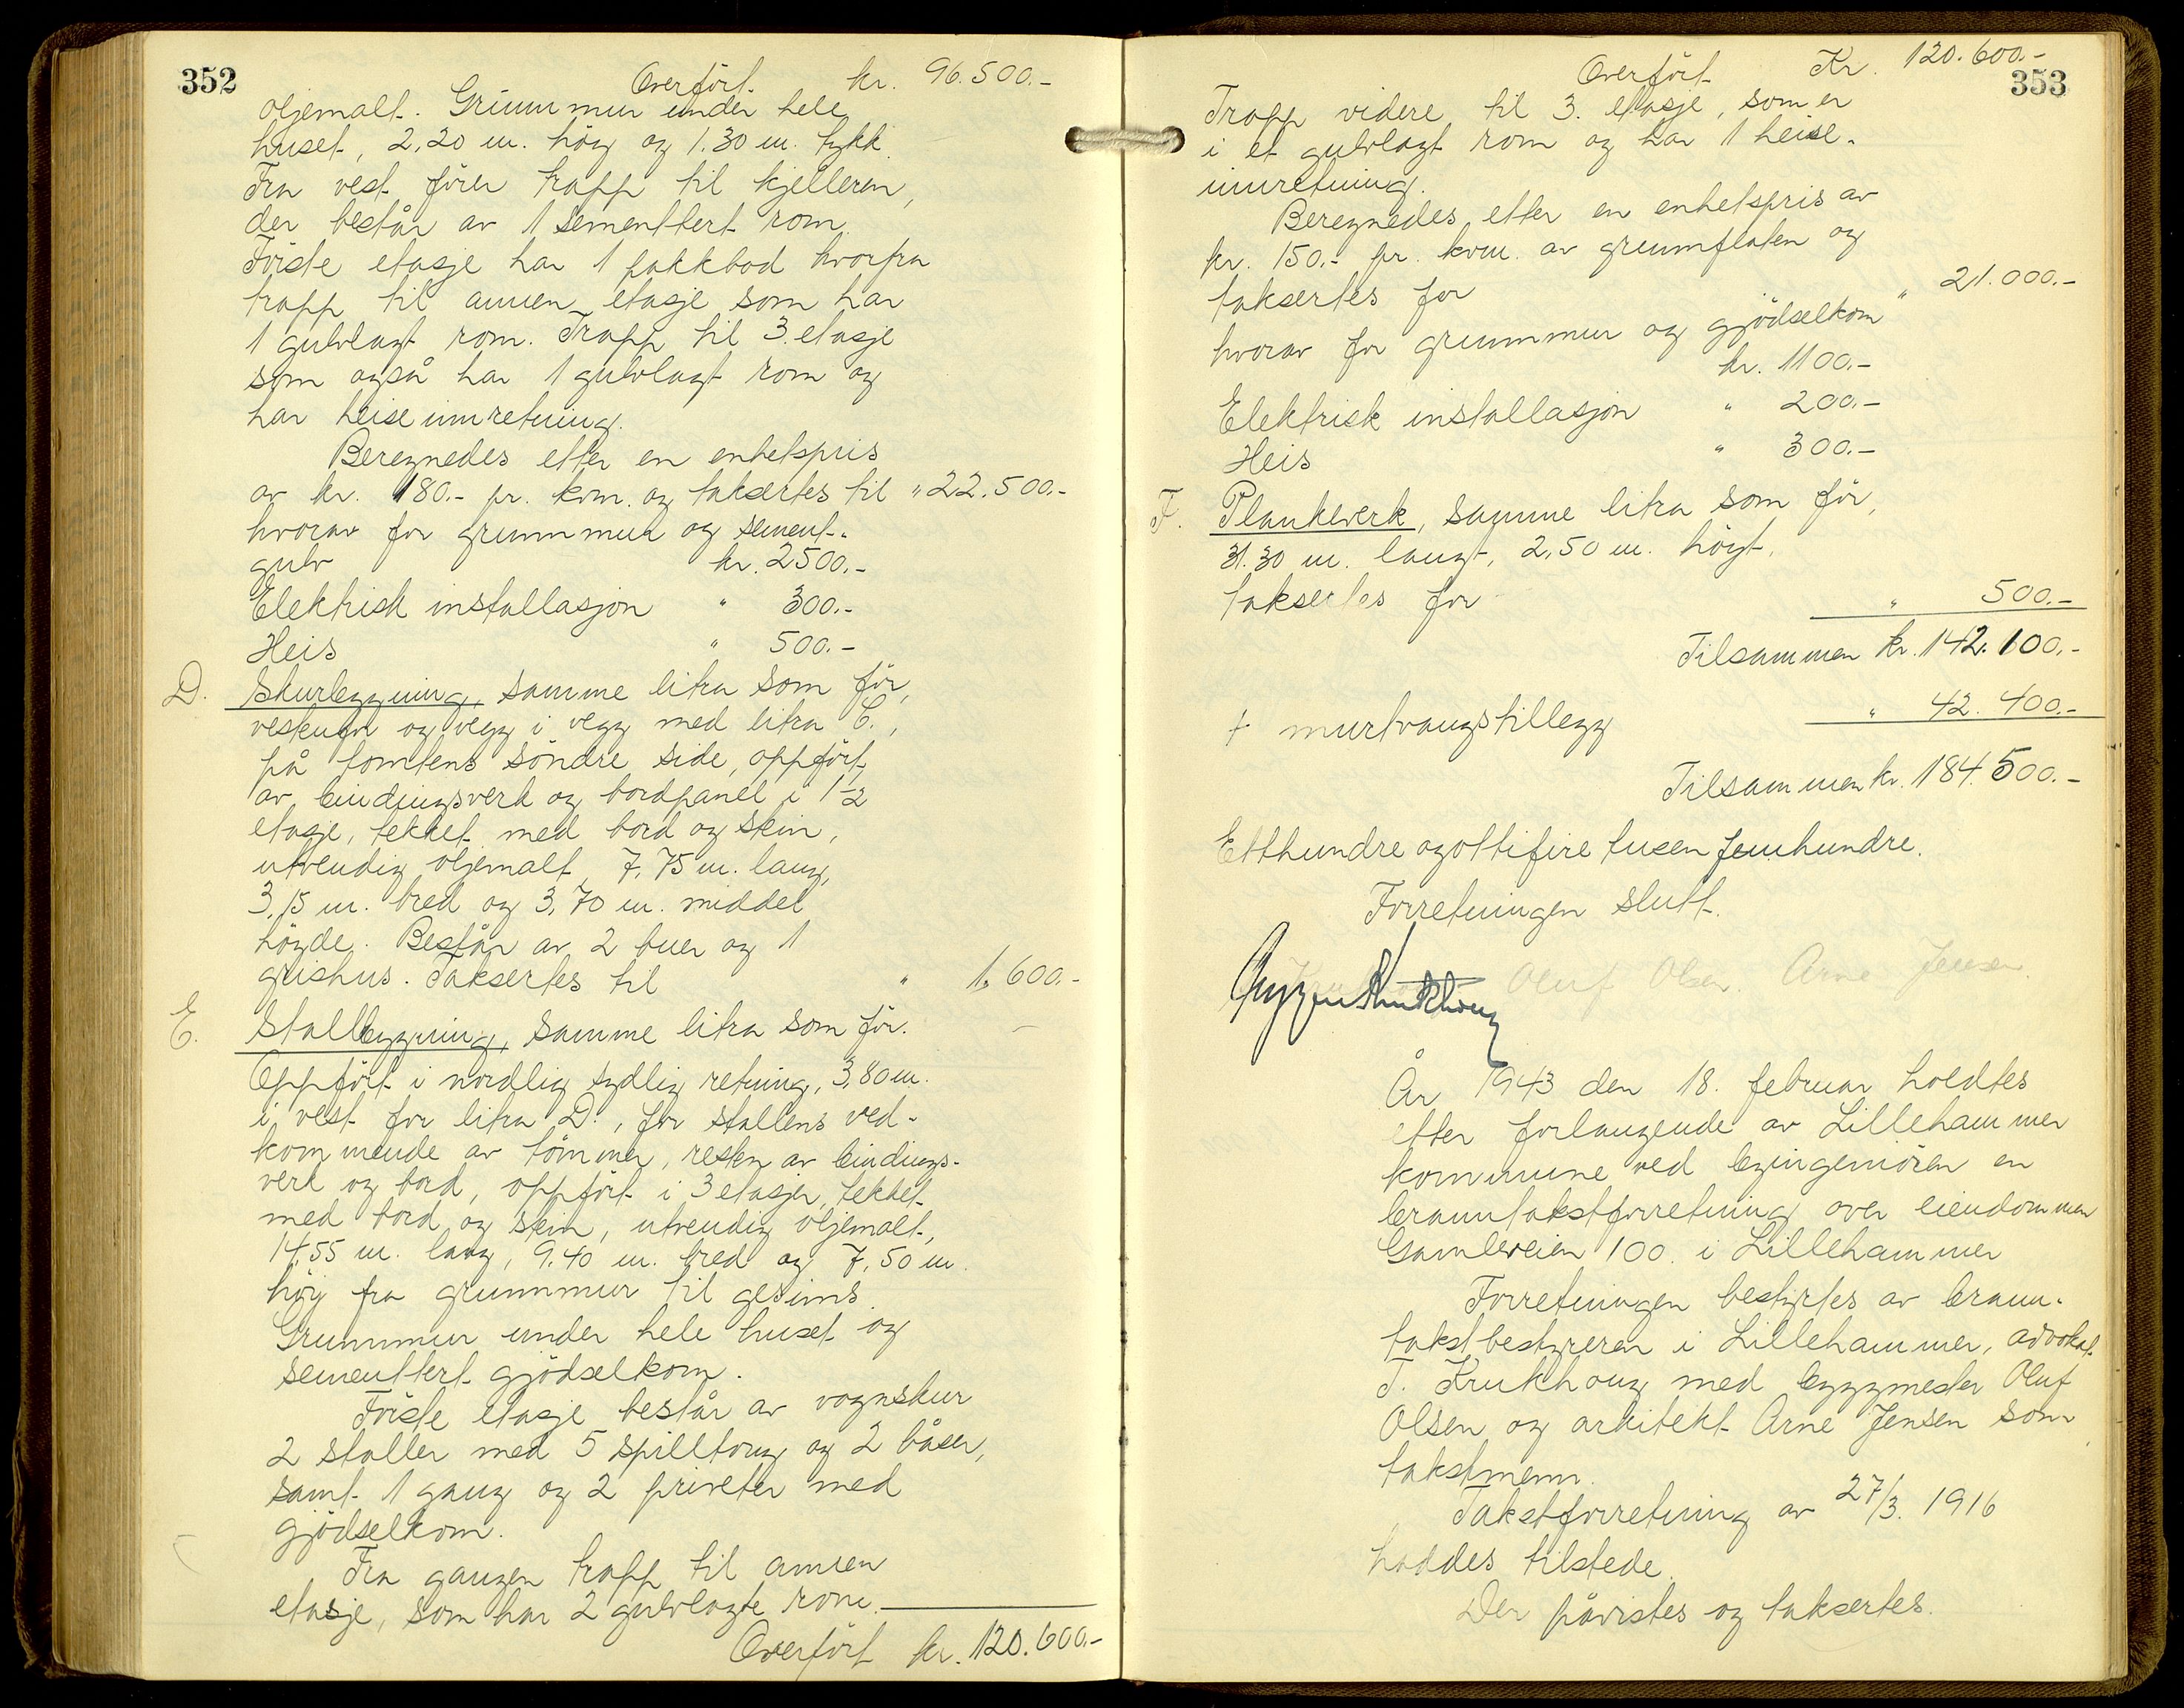 352
Overført. kr. 96.500.-
oljemalt. Grunnmur under hele
huset, 2,20 m. høy og 1.30 m. tykk.
Fra vest fører trapp til kjelleren,
der består av 1 sementtert rom.
Første etasje har 1 pakkbod hvorfra
trapp til annen etasje som har
1 gulvlagt rom. Trapp til 3. etasje
som også har 1 gulvlagt rom og
har heiseinnretning.
Beregnedes etter en enhetspris
av kr. 180.- pr. kvm. og taksertes til " 22.500.-
hvorav for grunnmur og sement-
gulv kr. 2500.-
Elektrisk installasjon " 300.-
Heis " 500.-
D. Skurbygning, samme litra som før,
vestenfor og vegg i vegg med litra C.,
på tomtens søndre side, oppført
av bindingsverk og bordpanel i 1½
etasje, tekket med bord og skin,
utvendig oljemalt, 7,75 m. lang,
3,15 m. bred og 3,70 m. middel
høyde. Består av 2 buer og 1
grishus. Taksertes til " 1.600.-
E. Stallbygning, samme litra som før.
Oppført i nordlig sydlig retning, 3,80 m.
i vest for litra D., for stallens ved-
kommende av tømmer, resten av bindings-
verk og bord, oppført i 3 etasjer, tekket
med bord og skin, utvendig oljemalt,
14,55 m. lang, 9,40 m. bred og 7,50 m.
høy fra grunnmur til gesims.
Grunnmur under hele huset og
sementtert gjødselkom.
Første etasje består av vognskur
2 staller med 5 spilltoug og 2 båser,
samt 1 gang og 2 priveter med
gjødselkom.
Fra gangen trapp til annen
etasje, som har 2 gulvlagte rom.
Overført kr. 120.600.-
353
Overført Kr. 120.600.-
Trapp videre til 3. etasje, som er
i et gulvlagt rom og har 1 heise-
innretning.
Beregnedes etter en enhetspris av
kr. 150.- pr. kvm. av grunnflaten og
taksertes for " 21.000.-
hvorav for grunnmur og gjødselkom
kr. 1100.-
Elektrisk installasjon " 200.-
Heis " 300.-
F. Plankeverk, samme litra som før,
31.30 m. langt, 2,50 m. høyt,
taksertes for " 500.-
Tilsammen kr. 142.100.-
+ murtvangstillegg " 42.400.-
Tilsammen kr. 184.500.-
Etthundreogottifire tusen femhundre.
Forretningen slutt.
Krukhoug Oluf Olsen. Arne Jensen.
År 1943 den 18. februar holdtes
etter forlangende av Lillehammer
kommune ved byingeniøren en
branntakstforretning over eiendommen
Gamleveien 100. i Lillehammer
Forretningen bestyrtes av brann-
takstbestyreren i Lillehammer, advokat
T. Krukhoug med byggmester Oluf
Olsen og arkitekt Arne Jensen som
takstmenn.
Takstforretning av 27/3. 1916
haddes tilstede.
Der påvistes og taksertes.